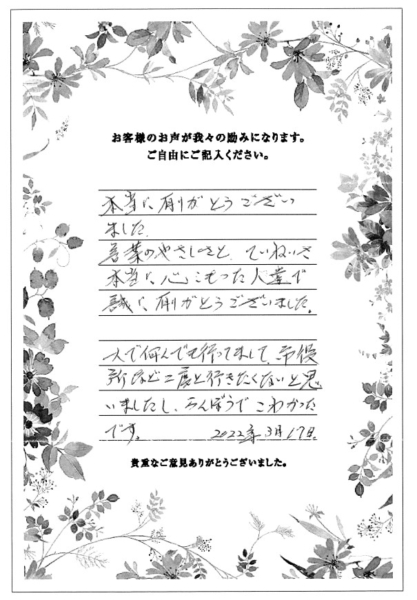 お客様のお声が我々の励みになります。
ご自由にご記入ください。
本当に有りがとうござい
ました
言葉のやさしさと、ていねいさ
本当に心こもった人達で
誠に有りがとうございました。
一人で何んでも行ってまして、市役
所など二度と行きたくないと思
いましたし、らんぼうでこわかった
です。 2022年3月17日
貴重なご意見ありがとうございました。